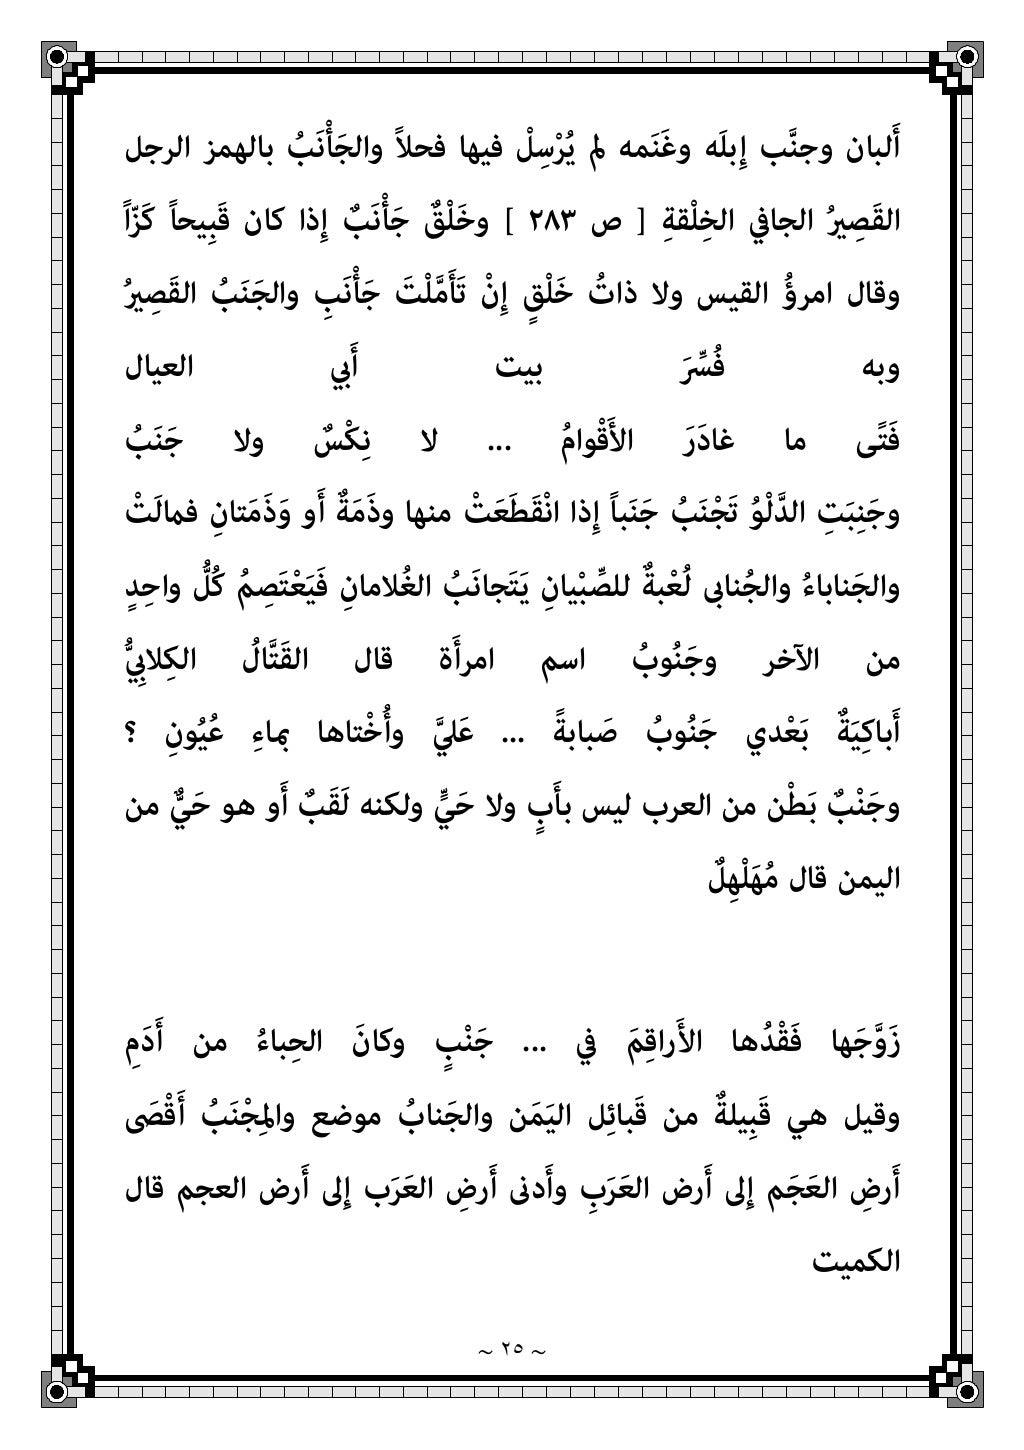 أَلبان وجنَّب إِبلَه وغَنَمه لم يُرْسِلْ فيها فحلاً والجَأْنَبُ بالهمز الرجل
القَصِيرُ الجافي الخِلْقةِ [ ص ٢٨٣ ] وخَلْقٌ جَأْنَبٌ إِذا كان قَبِيحاً كَزّاً
وقال امرؤُ القيس ولا ذاتُ خَلْقٍ إِنْ تَأَمَّلْتَ جَأْنَبِ والجَنَبُ القَصِيرُ
وبه فُسِّرَ بيت أَبي العيال
فَتًى ما غادَرَ الأَقْوامُ ... لا نِكْسٌ ولا جَنَبُ
وجَنِبَتِ الدَّلْوُ تَجْنَبُ جَنَباً إِذا انْقَطَعَتْ منها وذَمَةٌ أَو وَذَمَتانِ فمالَتْ
والجَناباءُ والجُنابى لُعْبةٌ للصِّبْيانِ يَتَجانَبُ الغُلامانِ فَيَعْتَصِمُ كُلُّ واحِدٍ
من الآخر وجَنُوبُ اسم امرأَة قال القَتَّالُ الكِلابِيُّ
أَباكِيَةٌ بَعْدي جَنُوبُ صَبابةً ... عَليَّ وأُخْتاها بماءِ عُيُونِ ؟
وجَنْبٌ بَطْن من العرب ليس بأَبٍ ولا حَيٍّ ولكنه لَقَبٌ أَو هو حَيٌّ من
اليمن قال مُهَلْهِلٌ
زَوَّجَها فَقْدُها الأَراقِمَ في ... جَنْبٍ وكانَ الحِباءُ من أَدَمِ
وقيل هي قَبِيلةٌ من قَبائِل اليَمَن والجَنابُ موضع والمِجْنَبُ أَقْصَى
أَرضِ العَجَم إِلى أَرض العَرَبِ وأَدنى أَرضِ العَرَب إِلى أَرض العجم قال
الكميت
~ ٢٥ ~